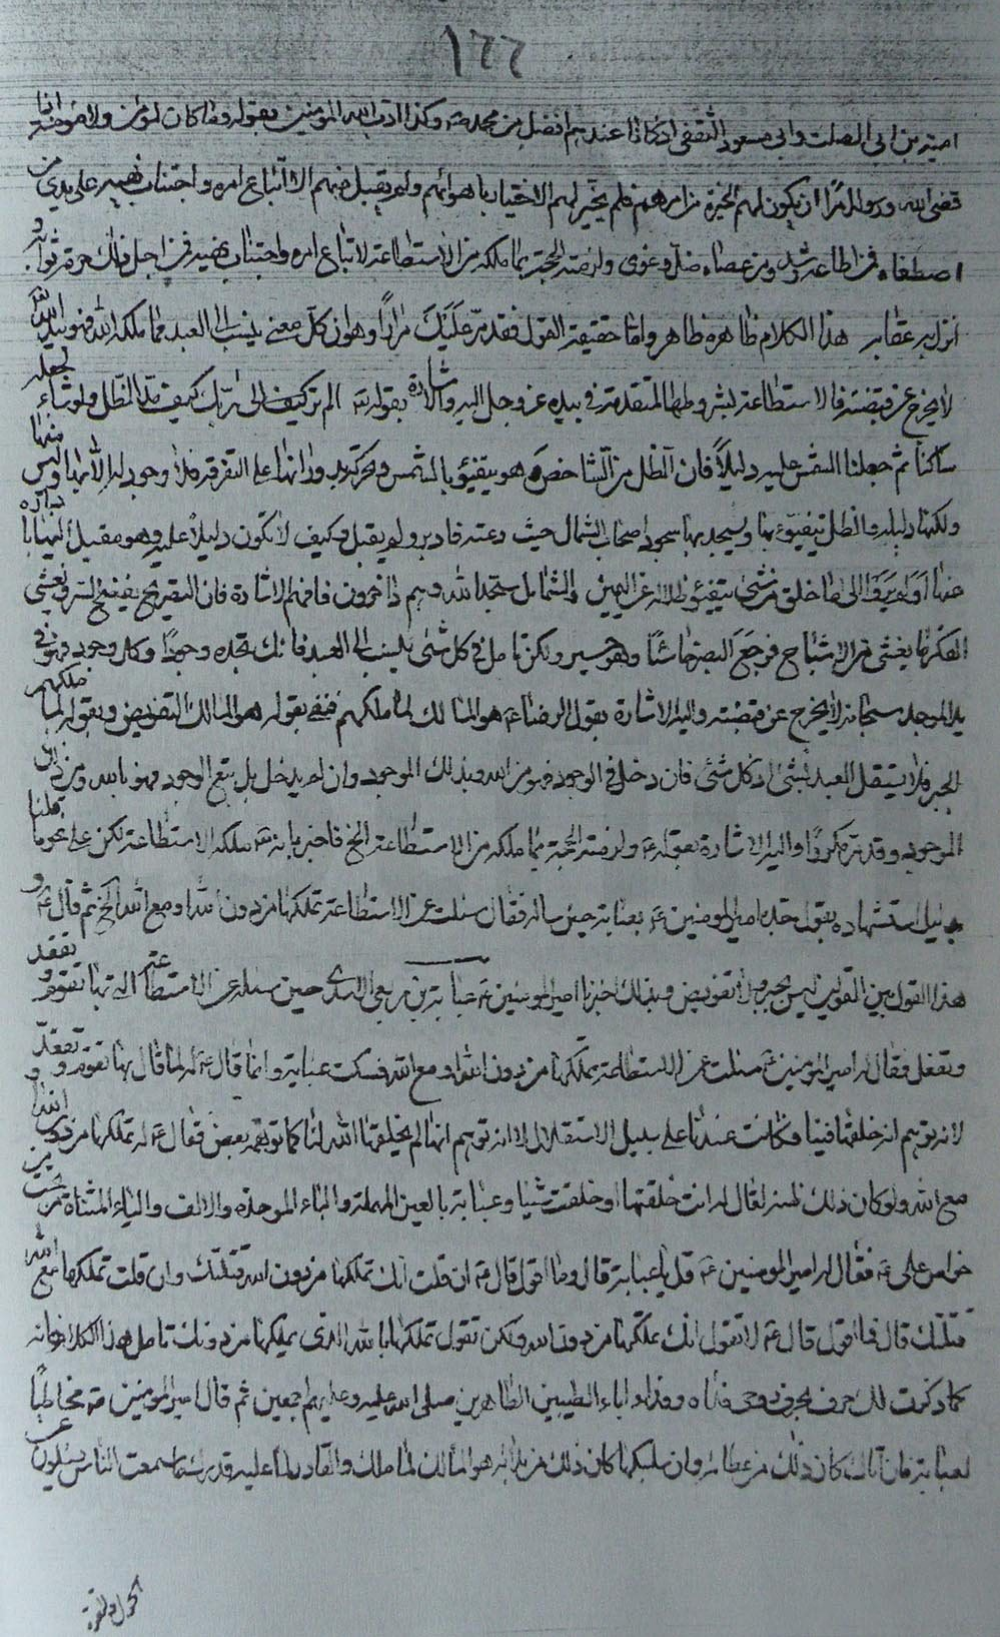 ١٦٦
امية بن ابي الصلت وابي مسعود الثقفي اذ كانا عندهم افضل من محمد وكذا ادب الله المؤمنين بقوله وما كان لمؤمن ولا مؤمنة اذا
قضى الله ورسوله امرا ان يكون لهم الخيرة من امرهم فلم يخير لهم الاختيار باهوائهم ولم يقبل منهم الا اتباع امره واجتناب نهيه على يدي من
اصطفاه فمن اطاعه رشد ومن عصاه ضل وغوى ولزمته الحجة بما ملكه من الاستطاعة لاتباع امره واجتناب نهيه فمن اجل ذلك حرمه ثوابه و
انزل به عقابه هذا الكلام ظاهره ظاهر واما حقيقة القول فقد مر عليك مرارا وهو ان كل معنى ينسب الى العبد مما ملكه الله فهو بيد الله
لا يخرج عن قبضته فالاستطاعة بشروطها المتقدمة في بيده عز وجل اليه والاشارة بقوله تعالى الم تر كيف الى ربك كيف مد الظل ولو شاء لجعله
ساكنا ثم جعلنا الشمس عليه دليلا فان الظل من الشاخص هو يتفيؤ بالشمس وحركته بدورانها على التفرقة فلا وجود له الا بها وليس منها
ولكنها دليله والظل يتفيؤ بها ويسجد بها سجود اصحاب الشمال حيث دعته فادبر ولم يقبل وكيف لا تكون دليلا عليه وهو مقبل اليها بادباره
عنها اولم يروا الى ما خلق من شيء يتفيؤ ظلاله عن اليمين والشمايل سجدا لله وهم داخرون فافهم الاشارة فان التصريح يفتح السر ويغشي
الفكر بما يغشى من الاشباح فرجع البصر خاسئا وهو حسير ولكن تامل في كل شيء ينسب الى العبد فانك تجده وجودا وكل وجود فهو في
يد الموجد سبحانه لا يخرج عن قبضته واليه الاشارة بقول الرضا ع هو المالك لما ملكهم فنفى بقوله هو المالك التفويض وبقوله لما ملكهم
الجبر فلا يستقل العبد بشيء اذ كل شيء فان دخل في الوجود فهو من الله وبذلك الموجود وان لم يدخل بل يتبع الوجود فهو بالله ومن ذلك
الموجود وقد مر مكررا واليه الاشارة بقوله ع ولزمته الحجة بما ملكه من الاستطاعة الخ فاخبر بانه تعالى ملكه الاستطاعة لكن على نحو ما قلنا
بدليل استشهاده بقول جده امير المؤمنين ع بعباية حين ساله فقال سئلت عن الاستطاعة تملكها من دون الله او مع الله الخ ثم قال ع و
هذا القول بين القولين ليس بجبر ولا تفويض وبذلك اخبر امير المؤمنين ع عباية بن ربعي الاسدي حين سئله عن الاستطاعة التي بها تقوم وتقعد
وتفعل فقال له امير المؤمنين ع سئلت عن الاستطاعة تملكها من دون الله او مع الله فسكت عباية وانما قال ع له لما قال بها تقوم وتقعد و
لانه توهم انه خلقها فينا وكانت عندنا على سبيل الاستقلال لا انه توهم انها لم يخلقها الله لنا كما توهمه بعض فقال ع له تملكها من دون الله او
مع الله ولو كان ذلك ظنه لقال له انت خلقتها او خلقت شيئا وعباية بالعين المهملة والباء الموحدة والالف والياء المثناة من تحت من
خواص علي ع فقال له امير المؤمنين ع قل يا عباية قال وما اقول قال ع ان قلت انك تملكها من دون الله قتلتك وان قلت تملكها مع الله
قتلتك قال فما اقول قال ع لا تقول انك تملكها من دون الله ولكن تقول تملكها بالله الذي يملكها من دونك تامل هذا الكلام فانه
كما ذكرت لك حرف بحرف روحي فداه وفداء اباءه الطيبين الطاهرين صلى الله عليه وعليهم اجمعين ثم قال امير المؤمنين ع مخاطبا
لعباية فان ملكك كان ذلك من عطائه وان سلبكها كان ذلك من بلائه هو المالك لما ملك والقادر لما عليه قدرك اما سمعت الناس يسئلون عن
الحول والقوة